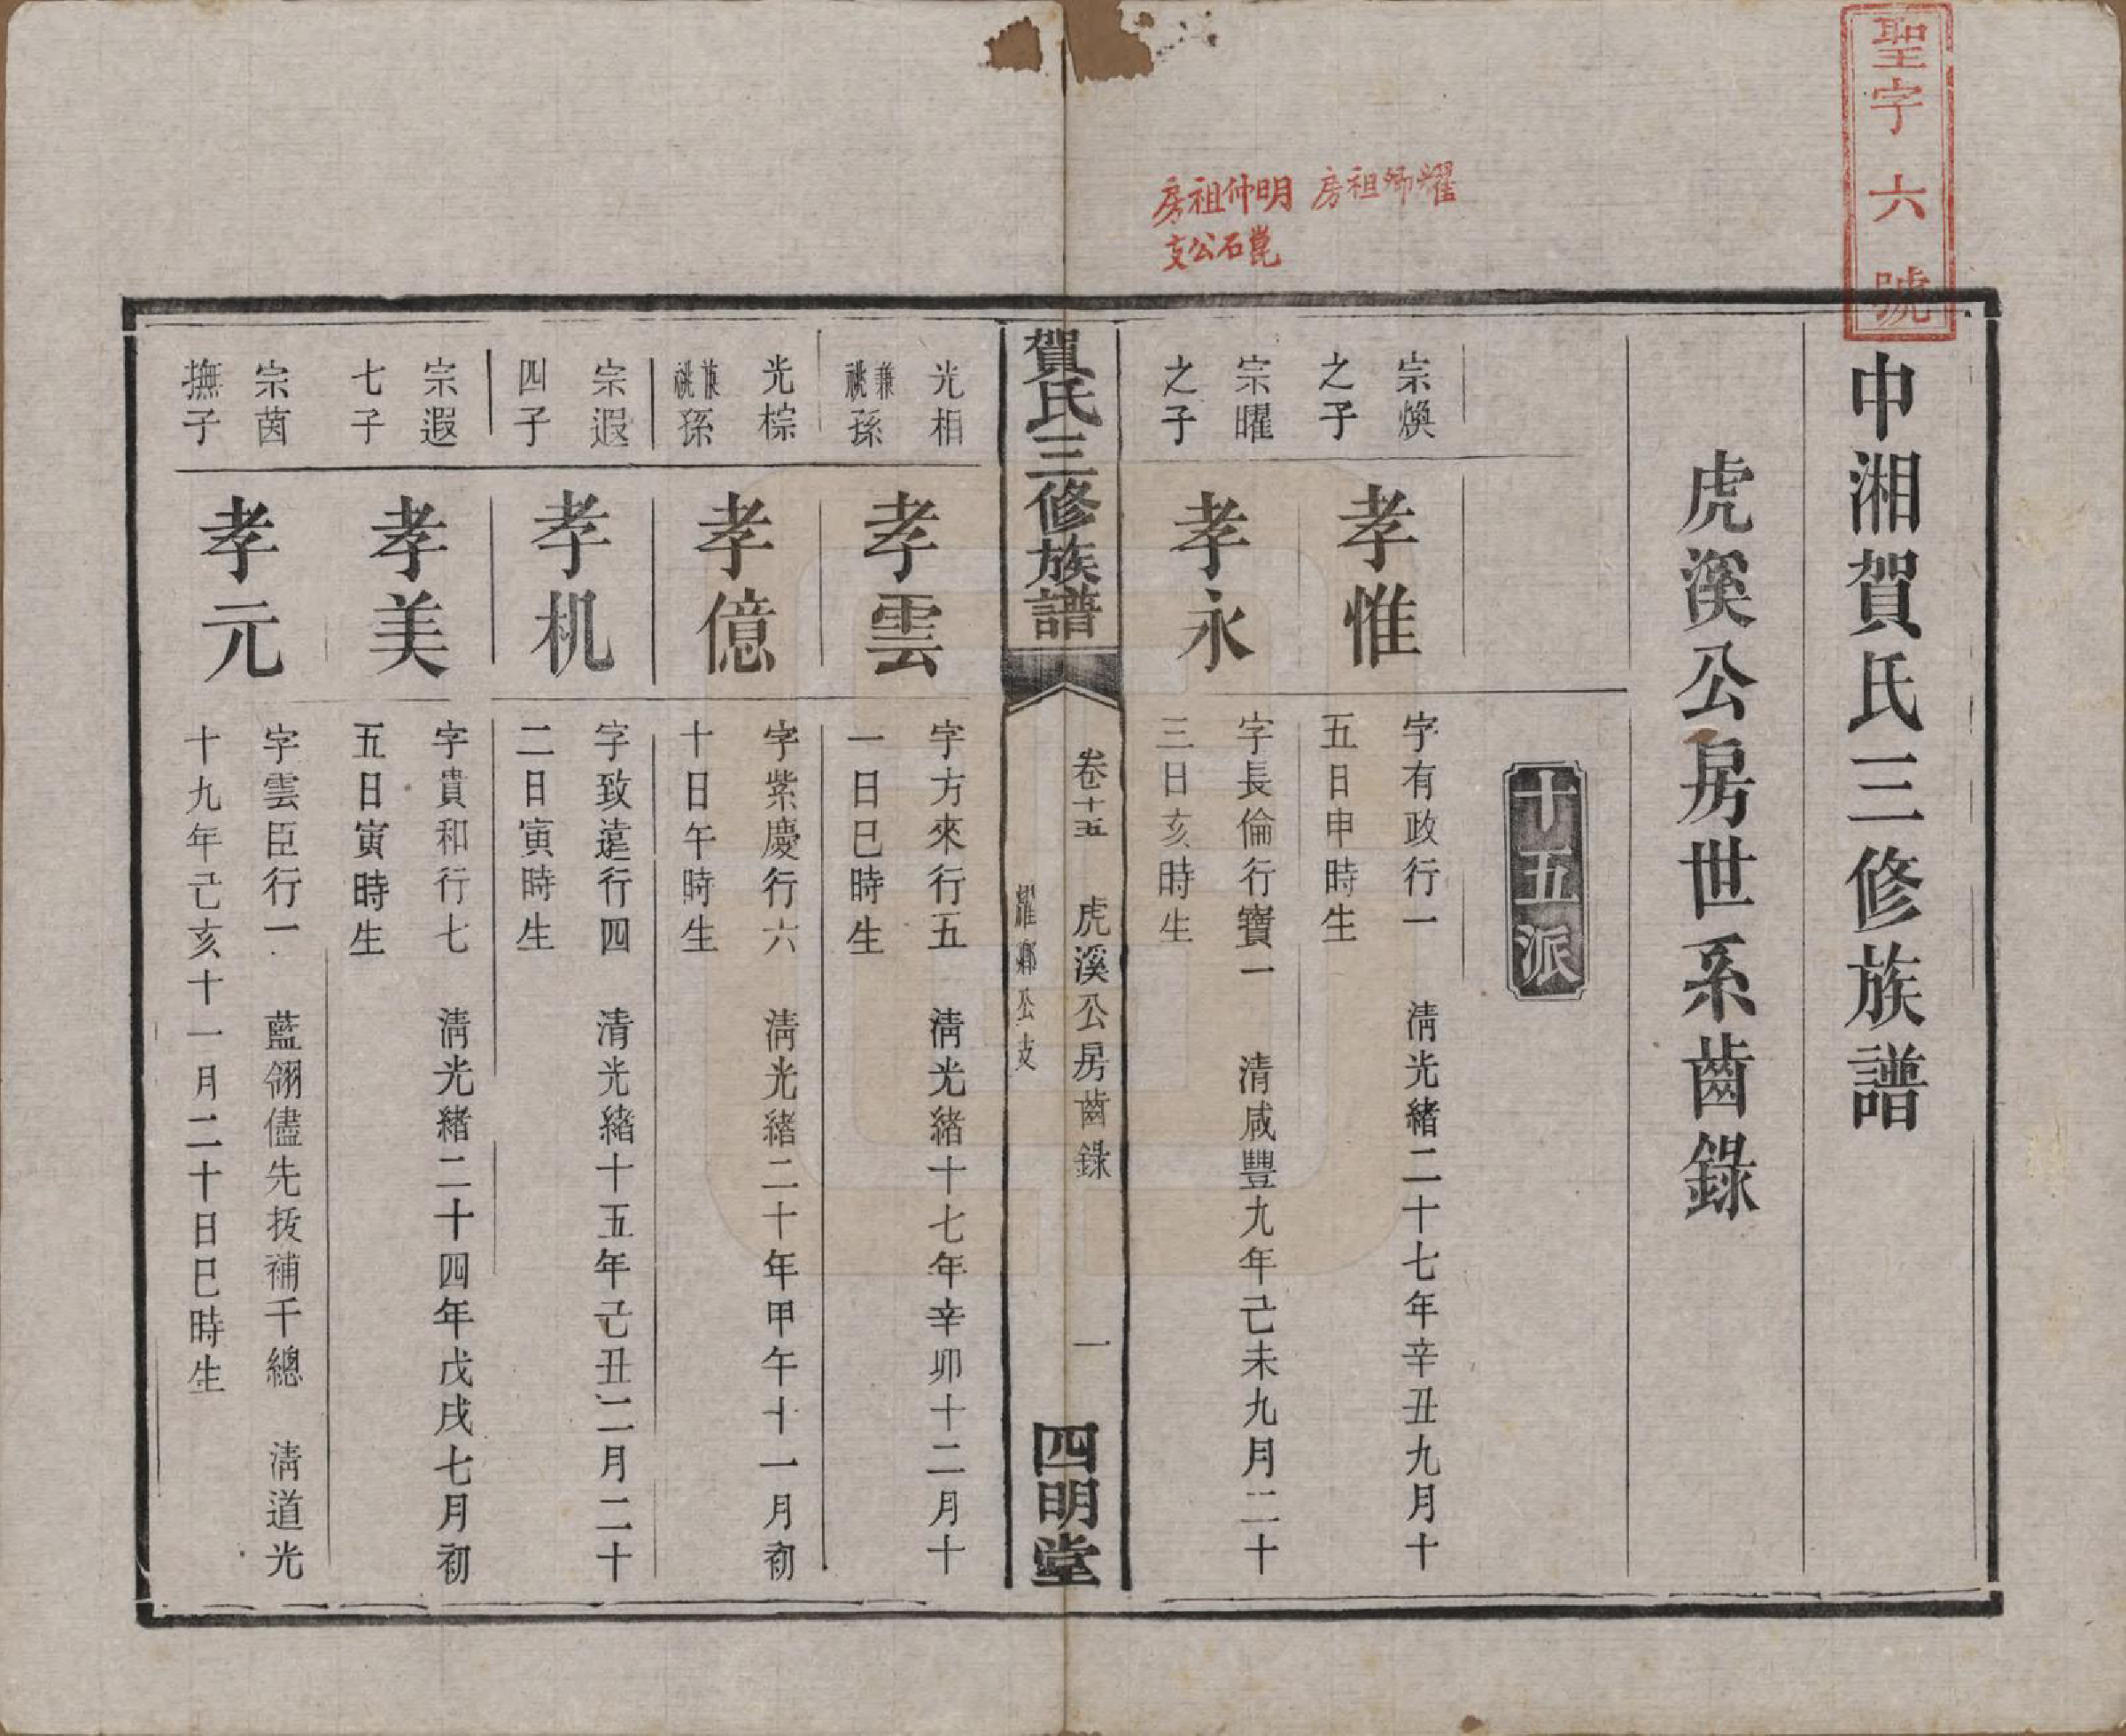 聖字六號
耀卿祖房
明仲祖房
崑石公支
中湘賀氏三修族譜
虎溪公房世系齒錄
十五派
宗煥
之子
孝惟
字有政行一 清光緒二十七年辛丑九月十
五日申時生
宗曜
之子
孝永
字長倫行寶一 清咸豐九年己未九月二十
三日亥時生
賀氏三修族譜
卷十五 虎溪公房齒錄 一
耀鄉公支
四明堂
光相
兼祧孫
孝雲
字方來行五 清光緒十七年辛卯十二月十
一日巳時生
光棕
兼祧孫
孝億
字紫慶行六 清光緒二十年甲午十一月初
十日午時生
宗遐
四子
孝机
字致遠行四 清光緒十五年己丑二月二十
二日寅時生
宗遐
七子
孝美
字貴和行七 清光緒二十四年戊戌七月初
五日寅時生
宗茵
撫子
孝元
字雲臣行一 藍翎儘先拔補千總 清道光
十九年己亥十一月二十日巳時生